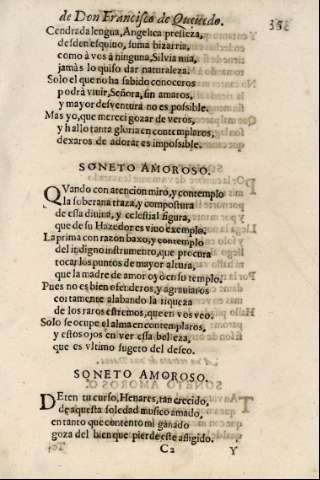 de Don Francisco de Queuedo. 35
Cendrada lengua, Angelica presteza,
desden esquiuo, suma bizarria,
como à vos à ninguna, Siluia mia,
jamàs lo quiso dar naturaleza.
Solo el que no ha sabido conoceros
podrà viuir, Señora, sin amaros,
y mayor desventura no es possible.
Mas yo, que merecì gozar de veros,
y hallo tanta gloria en contemplaros,
dexaros de adorar es impossible.
SONETO AMOROSO.
QVando con atencion miro, y contemplo
la soberana traza, y compostura
de essa diuina, y celestial figura,
que de su Hazedor es viuo exemplo.
La prima con razon baxo, y contemplo
del indigno instrumento, que procura
tocar los puntos de mayor altura,
que la madre de amor os dè en su templo.
Pues no es bien ofenderos, y agrauiaros
cortamente alabando la riqueza
de los raros estremos, que en vos veo.
Solo se ocupe el alma en contemplaros,
y estos ojos en ver essa belleza,
que es vltimo sugeto del deseo.
SONETO AMOROSO.
DEten tu curso, Henares, tan crecido,
de aquesta soledad musico amado,
en tanto que contento mi ganado
goza del bien que pierde este afligido.
C2 Y